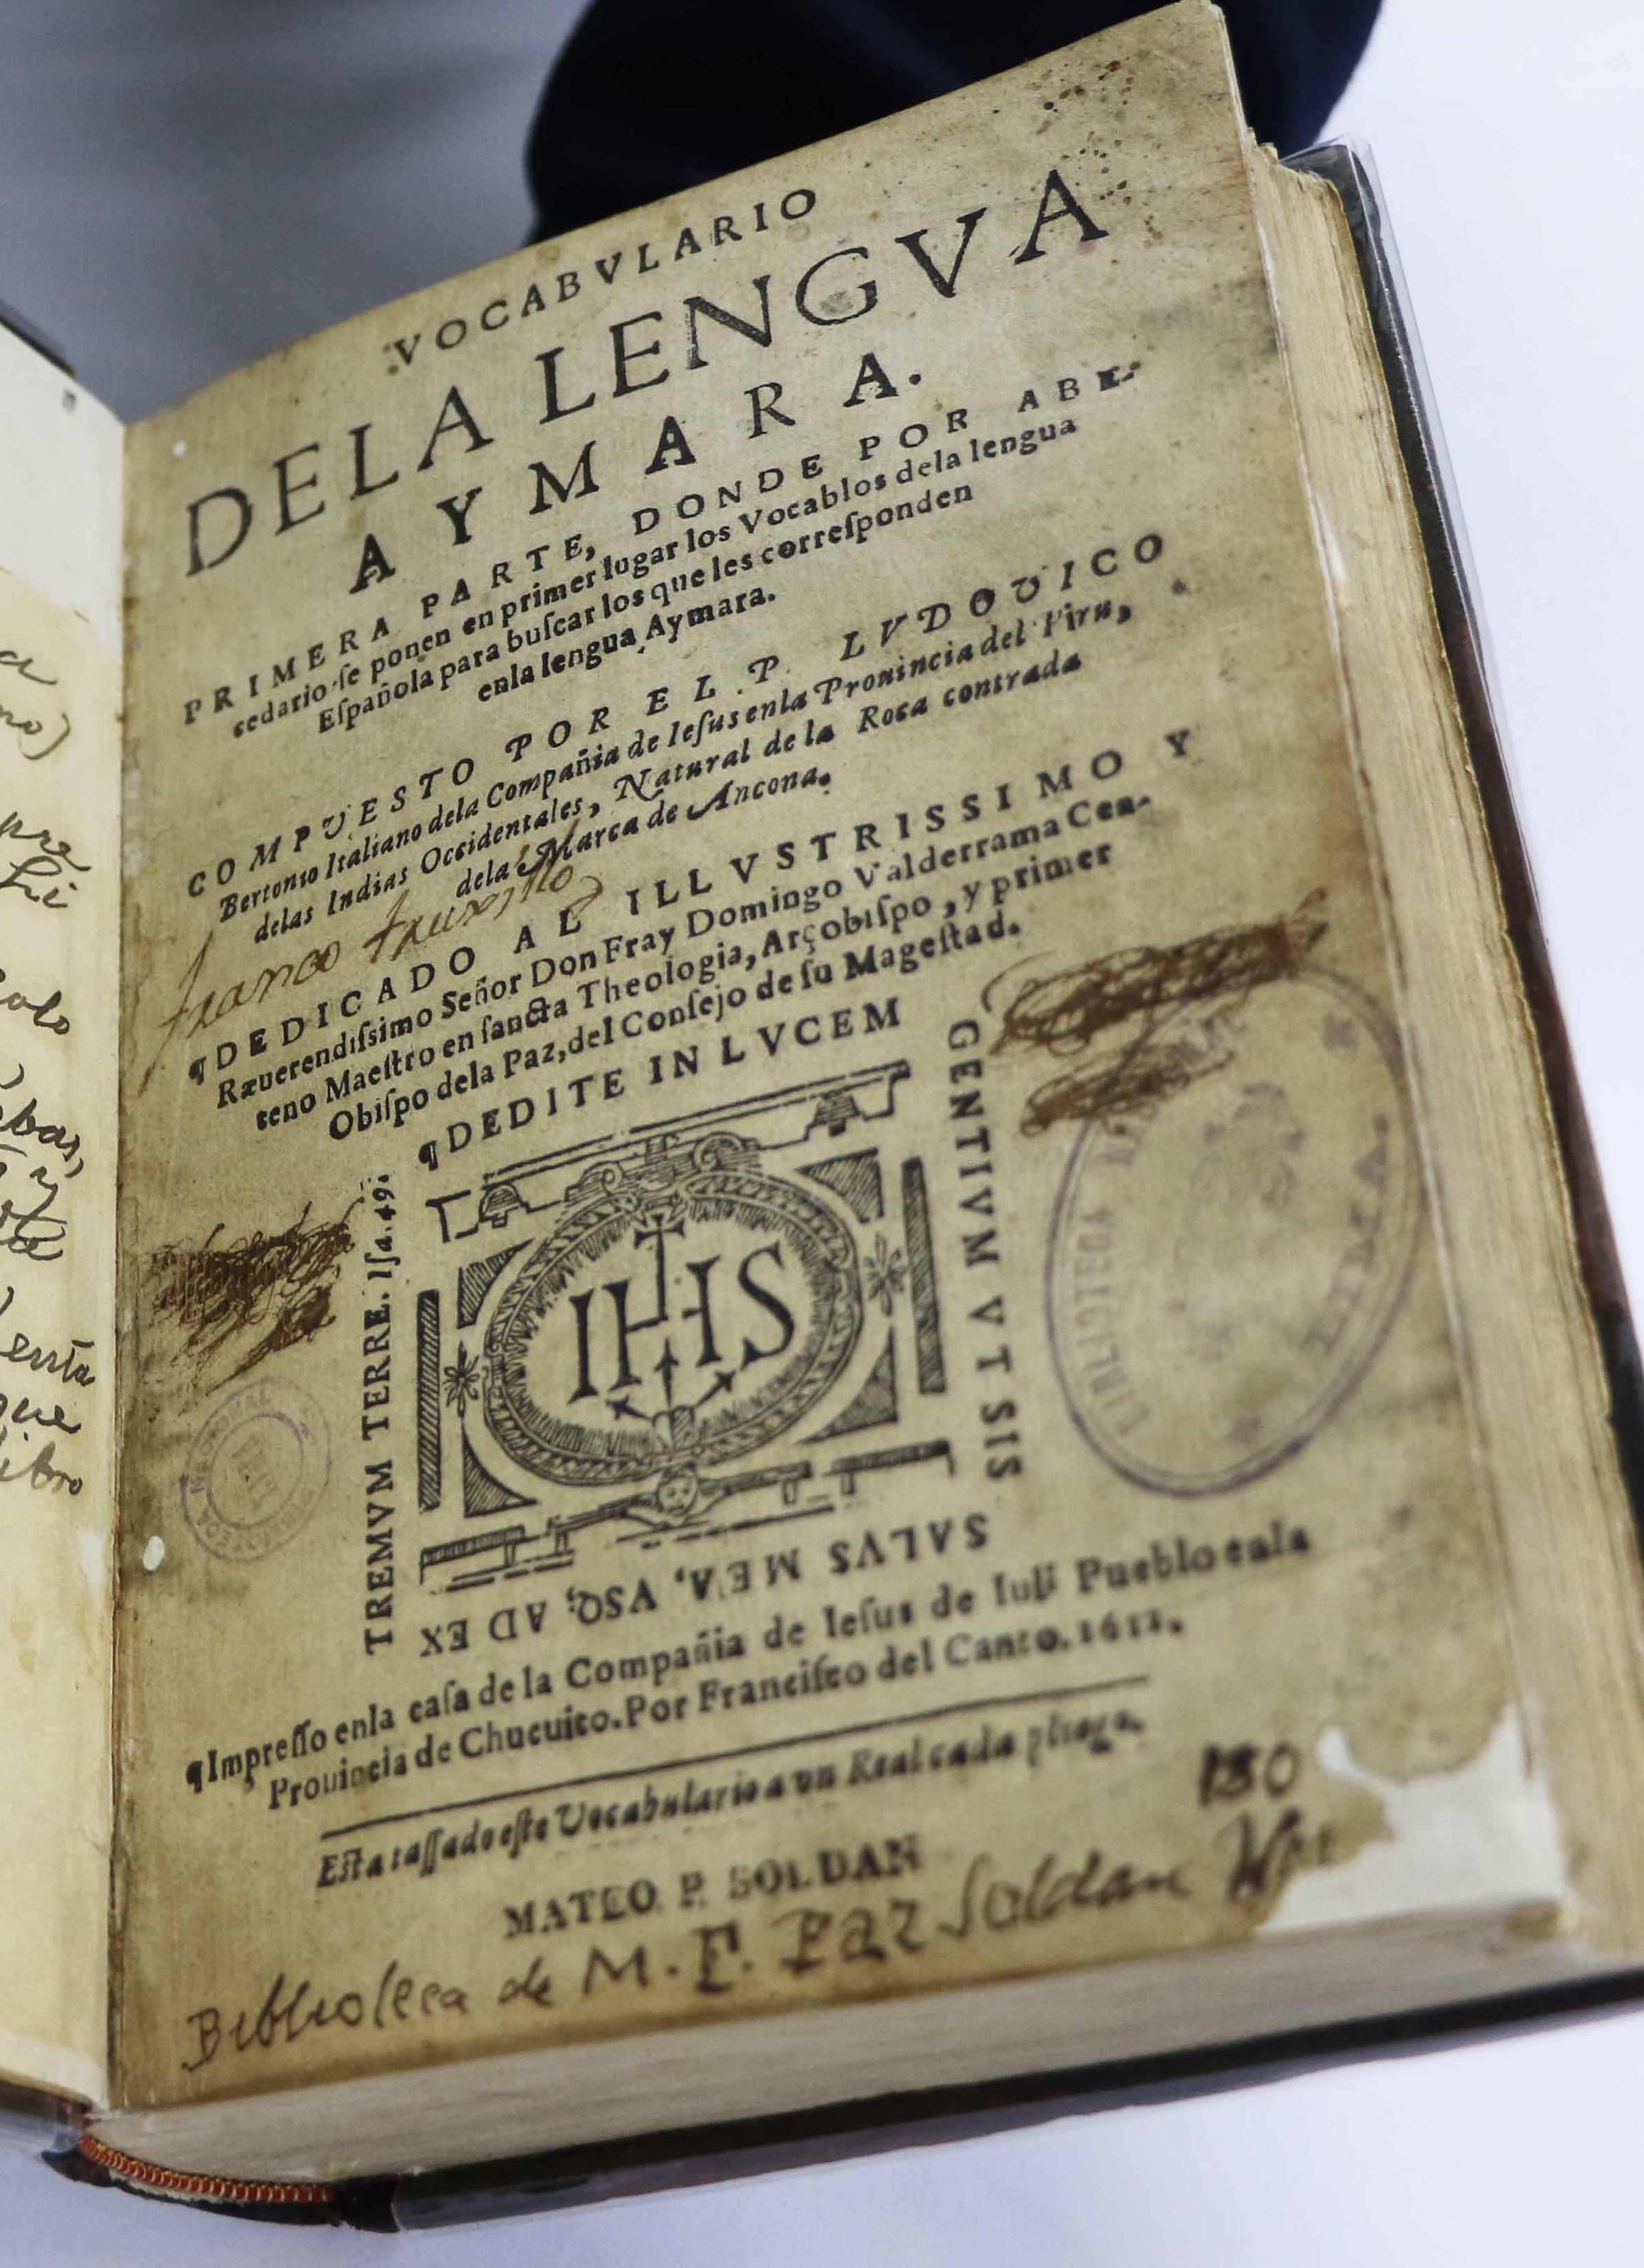 VOCABVLARIO
DELA LENGVA
AYMARA.
PRIMERA PARTE, DONDE POR ABE-
cedario se ponen en primer lugar los Vocablos dela lengua
Eſpañola para buſcar los que les correſponden
enla lengua Aymara.
COMPVESTO POR EL P. LVDOVICO
Bertonio Italiano dela Compañia de Ieſus enla Prouincia del Piru,
delas Indias Occidentales, Natural de la Roca contrada
dela Marca de Ancona.
franco truxillo
¶DEDICADO AL ILLVSTRISSIMO Y
Ræuerendiſsimo Señor Don Fray Domingo Valderrama Cen-
teno Maeſtro en ſancta Theologia, Arçobiſpo, y primer
Obiſpo dela Paz, del Conſejo de ſu Mageſtad.
¶DEDITE IN LVCEM
GENTIVM VT SIS
SALVS MEA, VSQ; AD EX
TREMVM TERRE. Iſa. 49.
IHS
BIBLIOTECA NACIONAL
LIMA
¶Impreſſo enla caſa de la Compañia de Ieſus de Iuli Pueblo enla
Prouincia de Chucuito. Por Franciſco del Canto. 1612.
Eſta taſſado eſte Vocabulario a vn Real cada pliego.
130
MATEO P. SOLDAN
Biblioteca de M. F. Paz Soldan